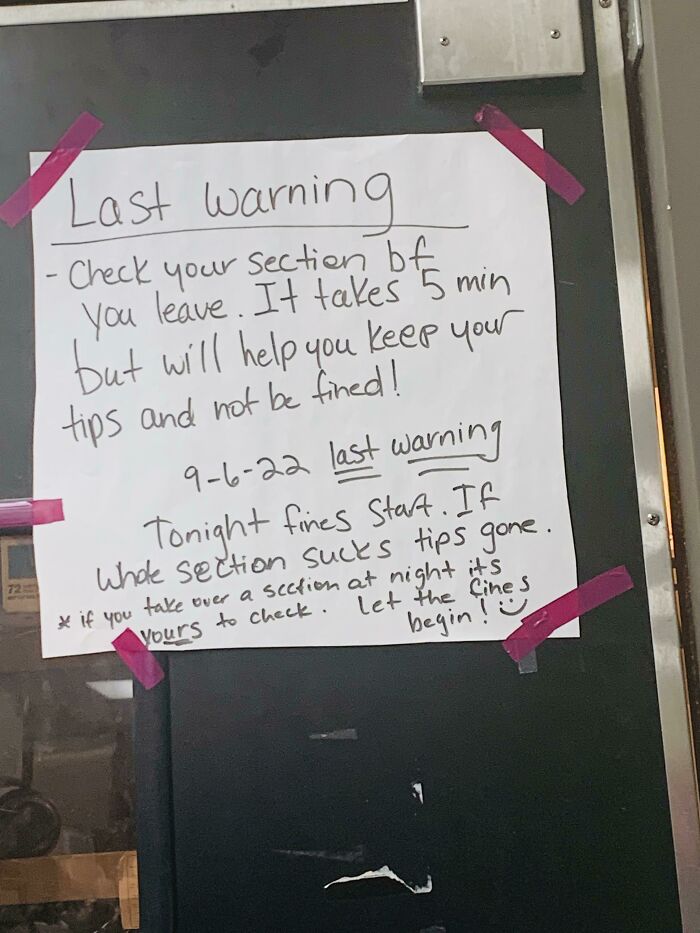 Last warning
- Check your section bf
you leave. It takes 5 min
but will help you keep your
tips and not be fined!
9-6-22 last warning
Tonight fines start. If
whole section sucks tips gone.
* if you take over a section at night its
yours to check. Let the fines
begin! :)
72